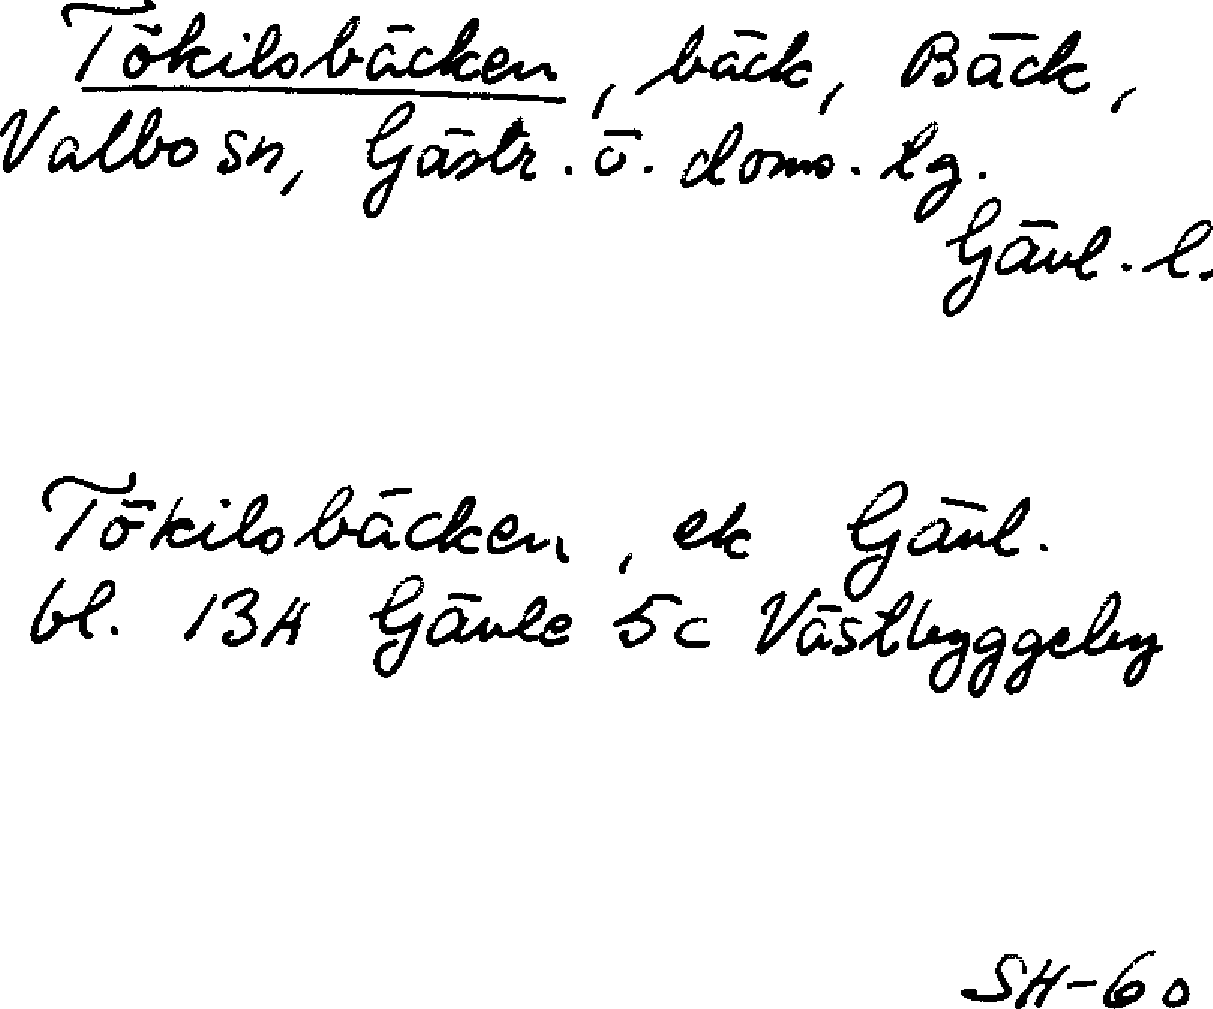 Tökilsbäcken, bäck, Bäck,
Valbo sn, Gästr. ö. doms. tg.
Gävl. l.
Tökilsbäcken, ek Gävl.
bl. 13H Gävle 5c Västbyggeby
SH-60